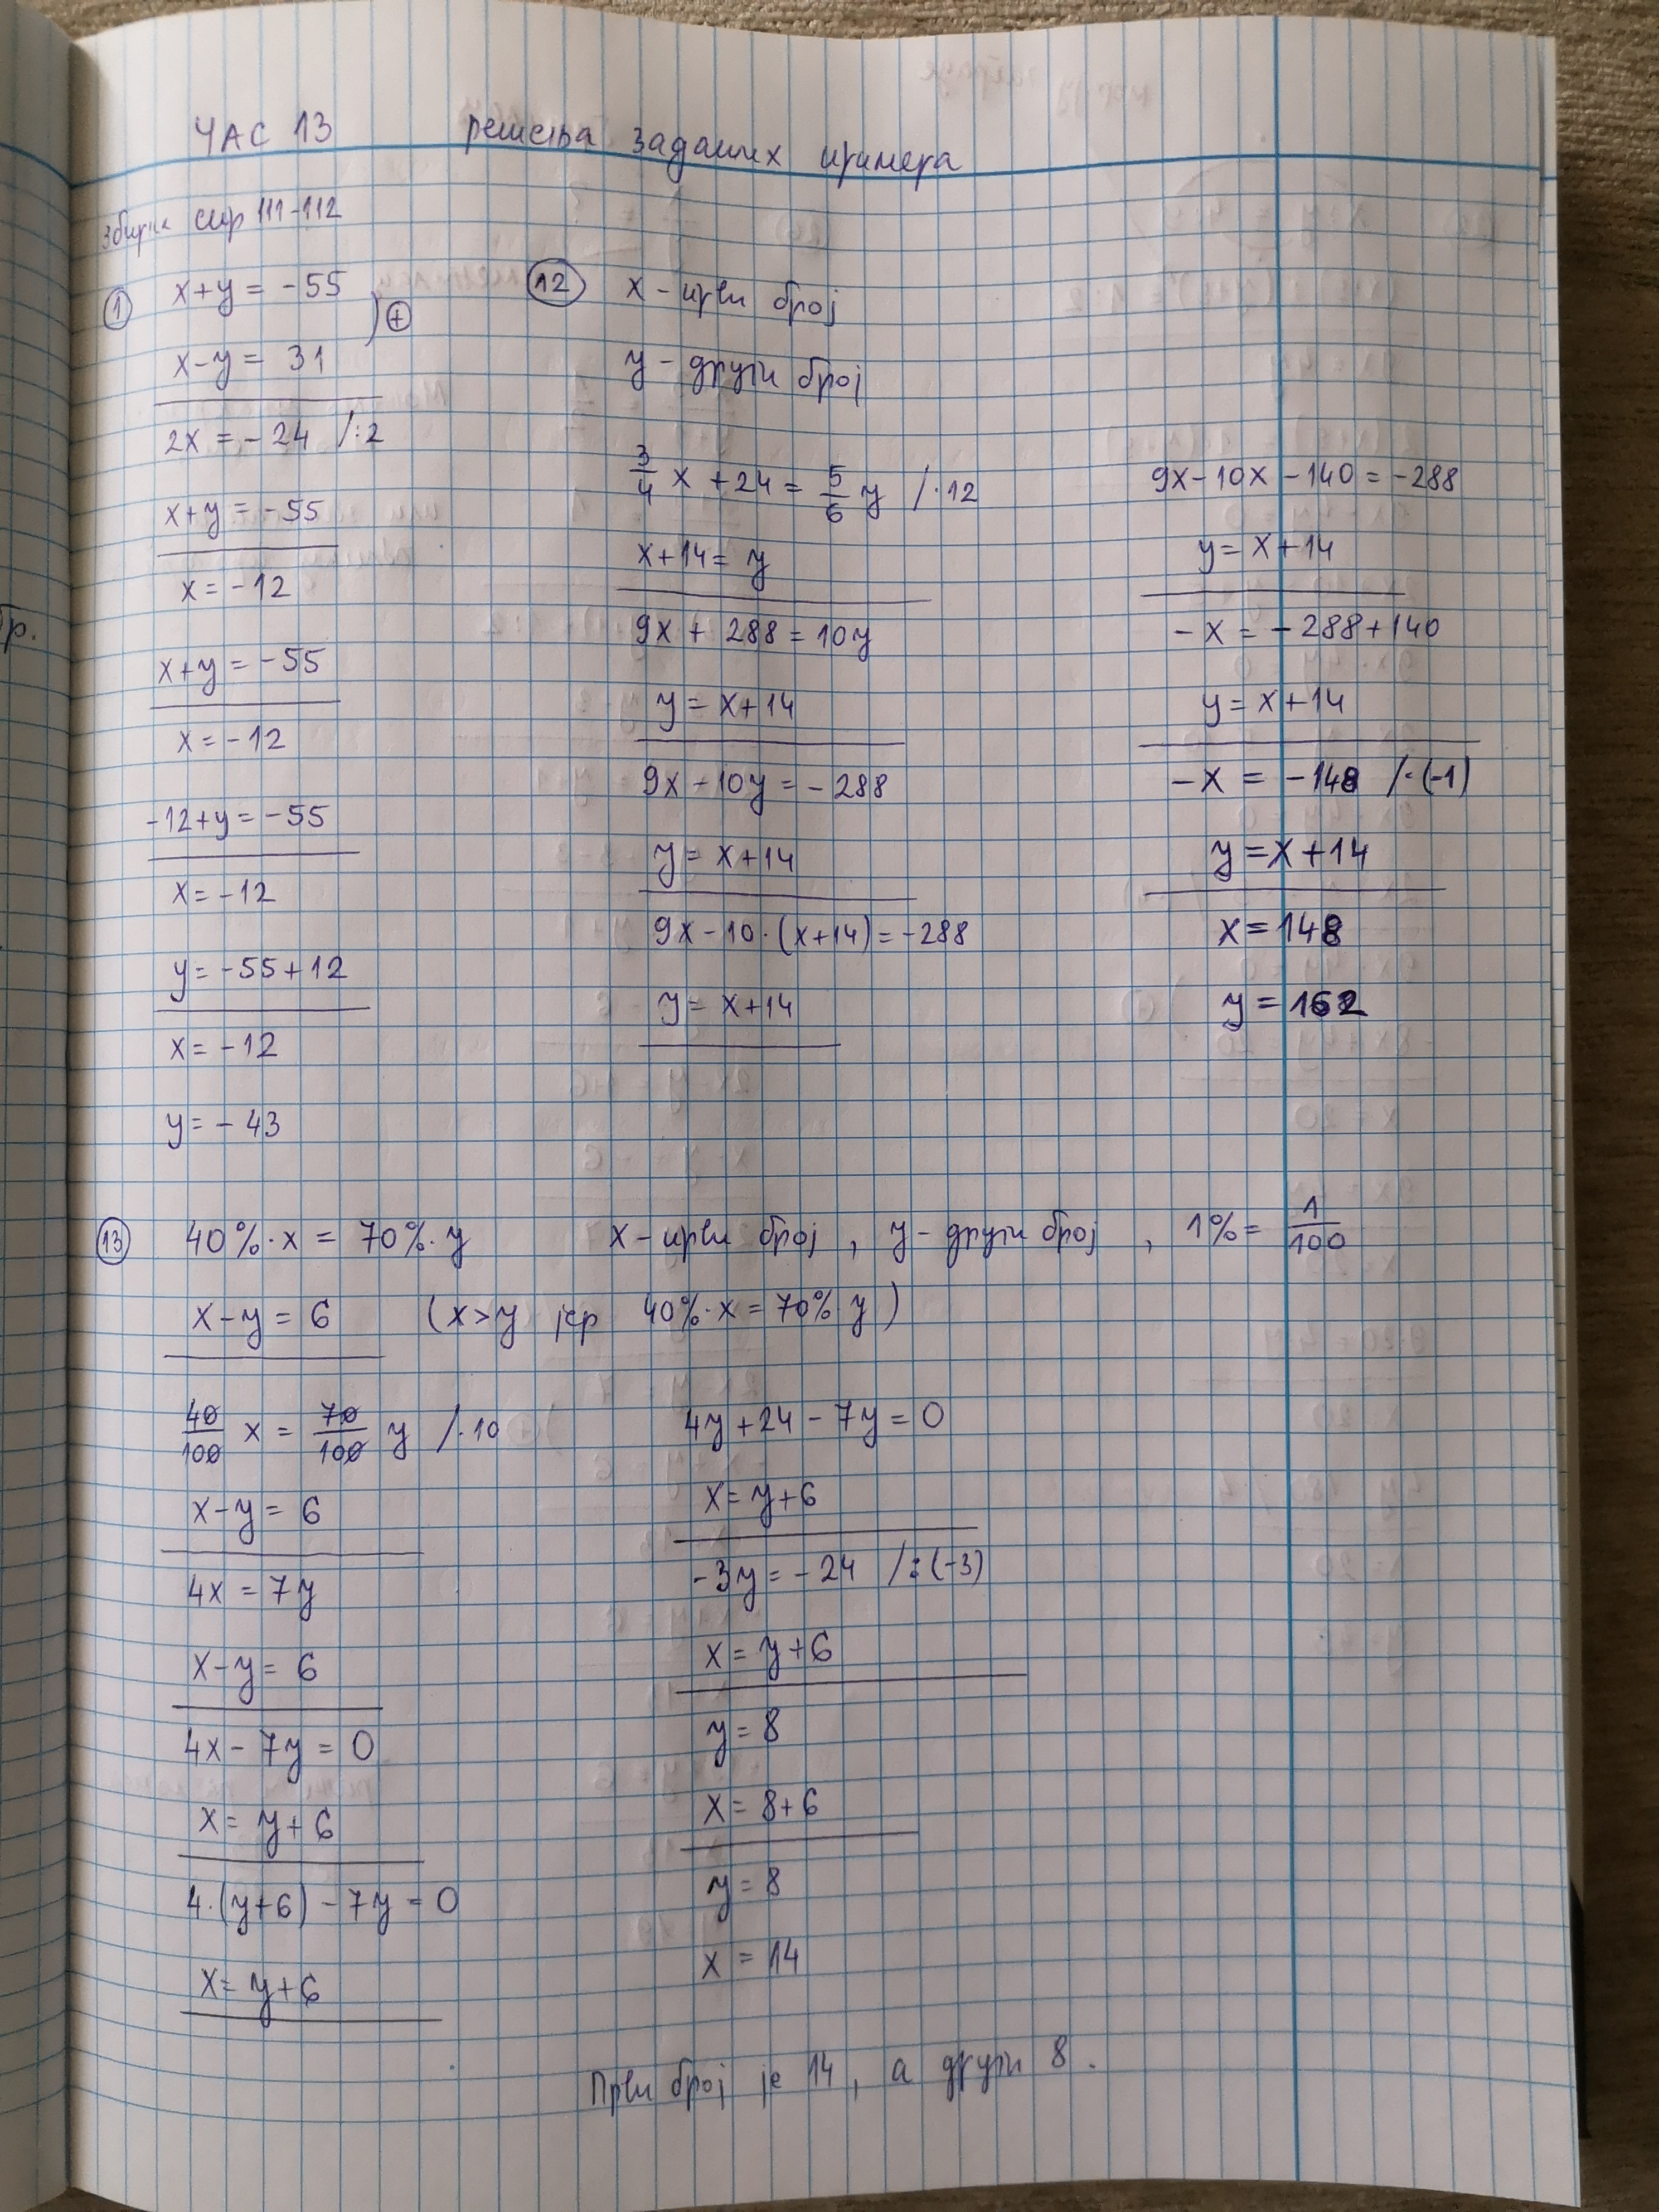 ЧАС 13 решења заданих примера
збирка стр 111-112
① x+y = -55 ) ⊕
x-y = 31
2x = -24 /:2
x+y = -55
x = -12
x+y = -55
x = -12
-12+y = -55
x = -12
y = -55+12
x = -12
y = -43
⑫ x - први број
y - други број
3/4 x + 24 = 5/6 y /·12
x+14 = y
9x + 288 = 10y
y = x+14
9x - 10y = -288
y = x+14
9x - 10·(x+14) = -288
y = x+14
9x - 10x - 140 = -288
y = x+14
-x = -288+140
y = x+14
-x = -148 /·(-1)
y = x+14
x = 148
y = 162
⑬ 40%·x = 70%·y x - први број , y - други број , 1% = 1/100
x-y = 6 (x>y јер 40%·x = 70% y)
40/100 x = 70/100 y /·10
x-y = 6
4x = 7y
x-y = 6
4x - 7y = 0
x = y+6
4·(y+6) - 7y = 0
x = y+6
4y+24 - 7y = 0
x = y+6
-3y = -24 /:(-3)
x = y+6
y = 8
x = 8+6
y = 8
x = 14
Први број је 14, а други 8.
бр.